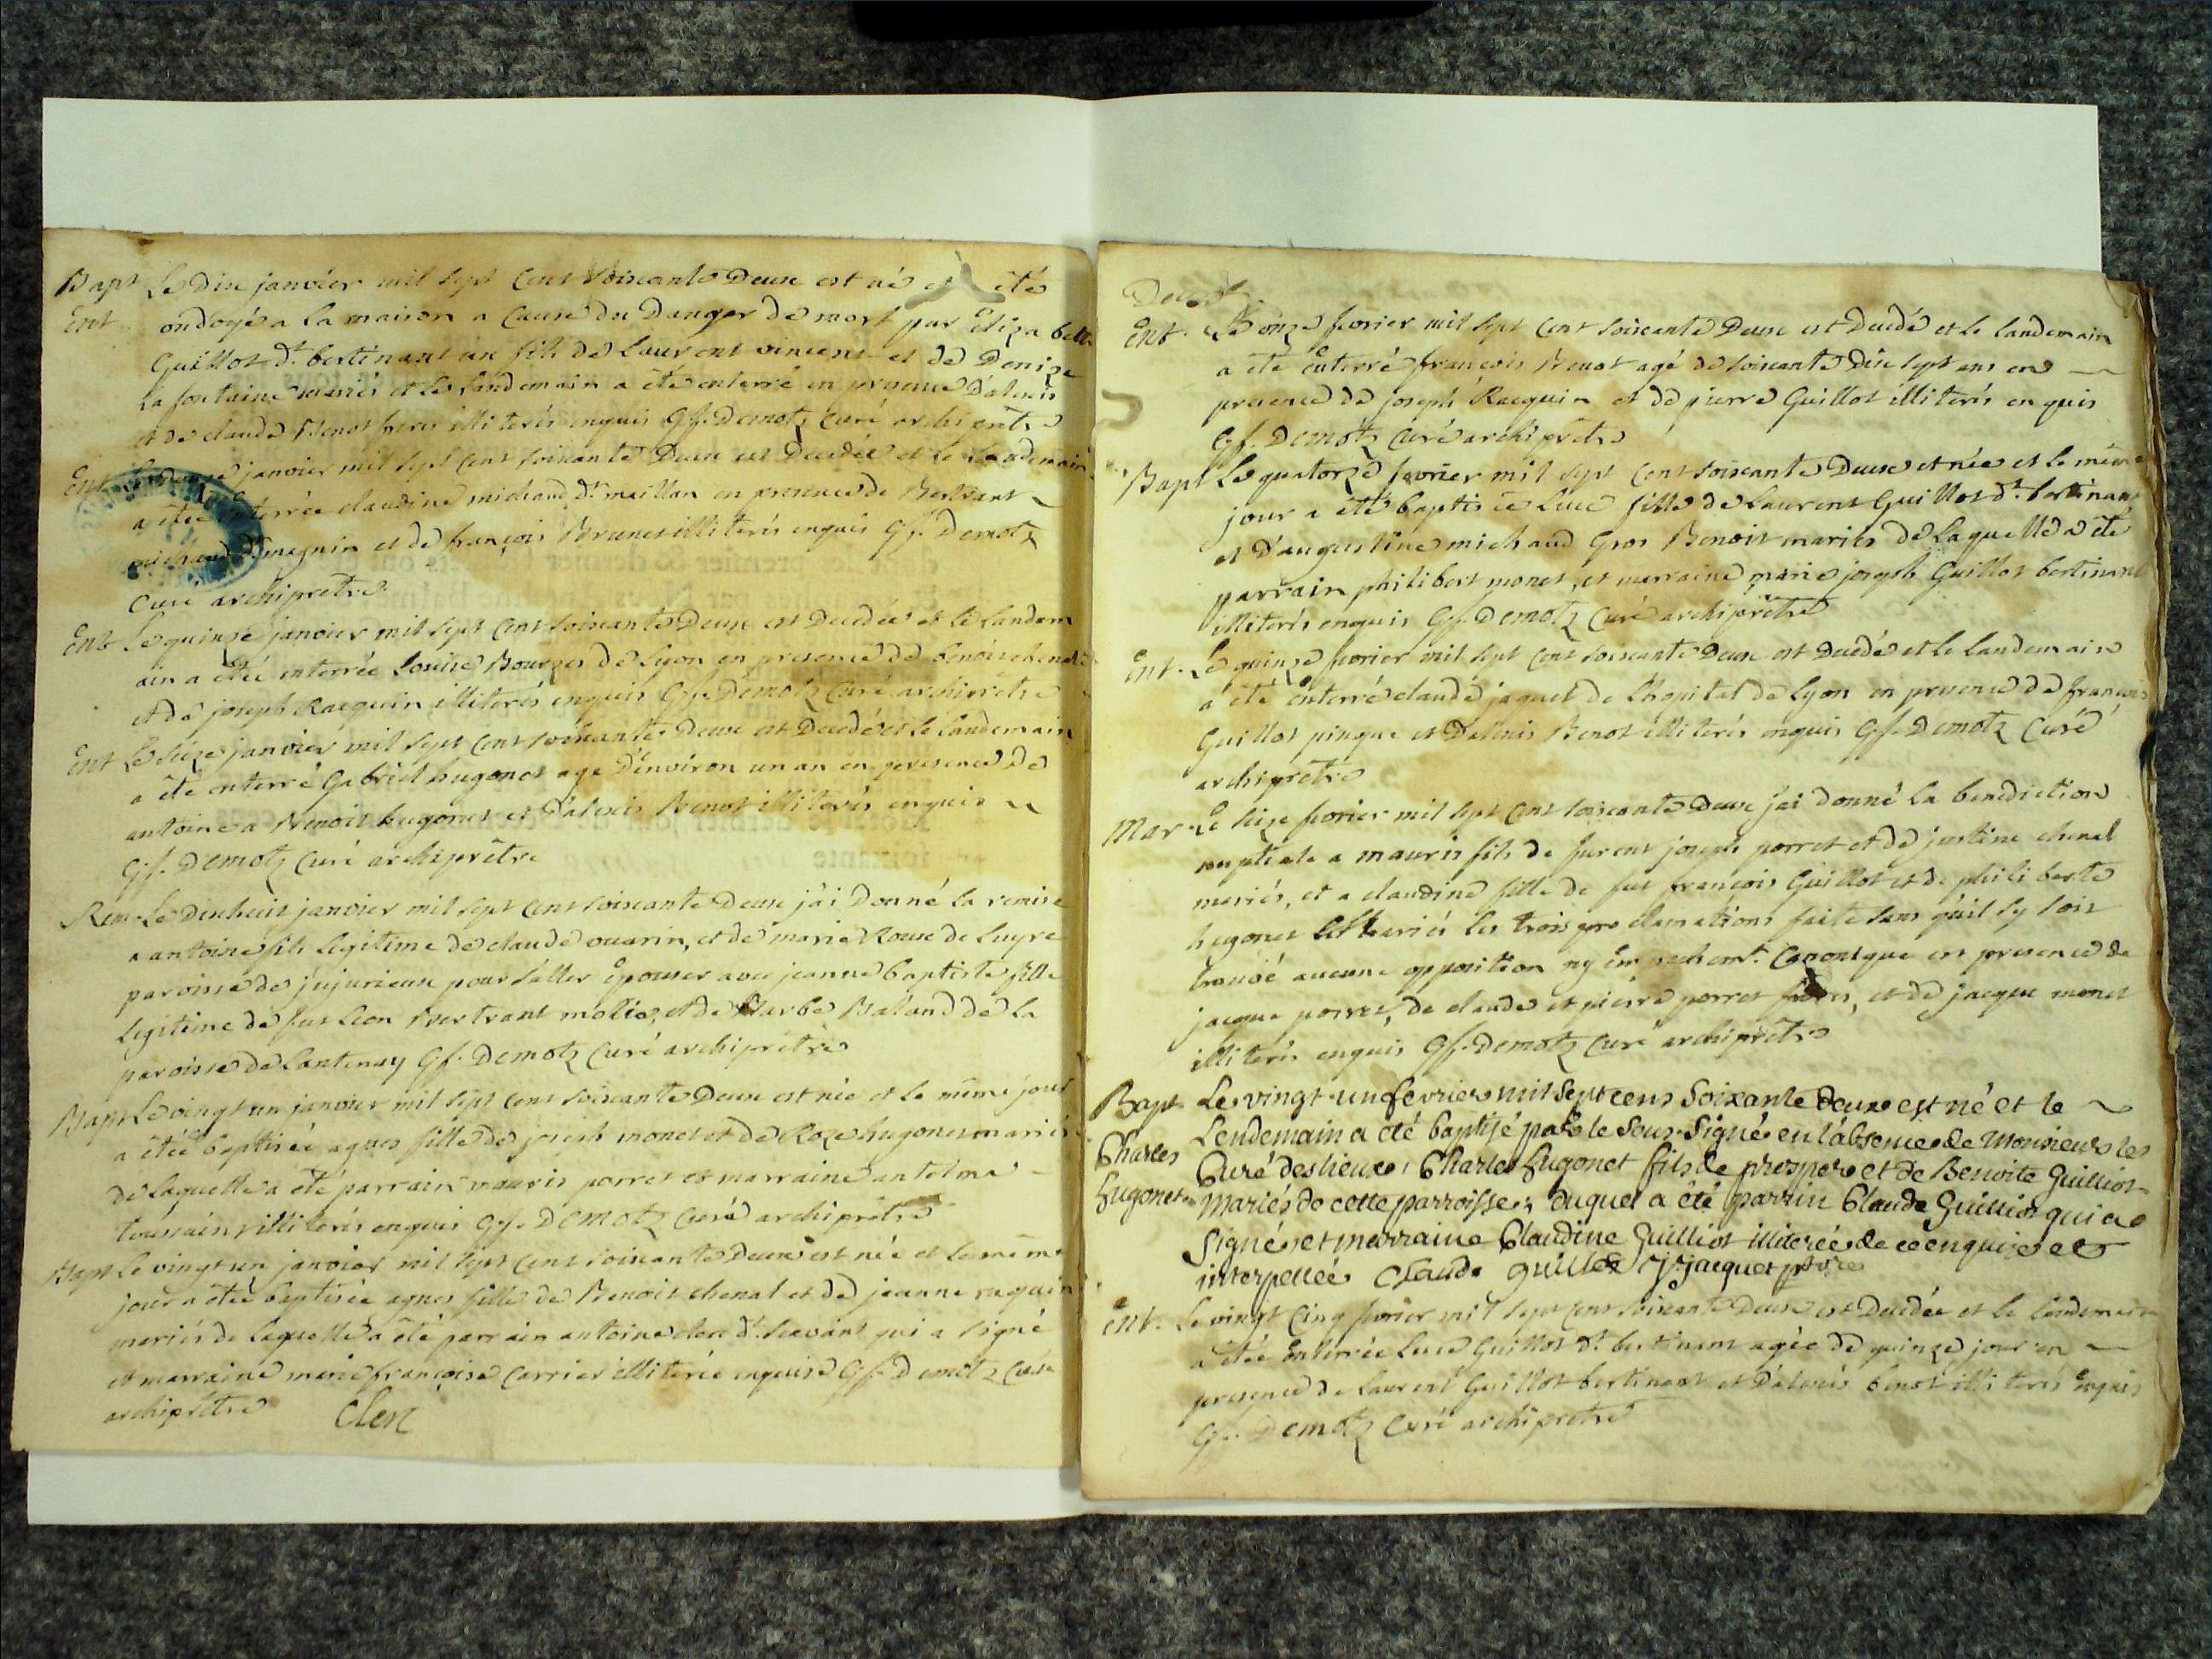 Bapt Le dix janvier mil sept cent soixante deux est né et été
Ent ondoyé a la maison a cause du danger de mort par Elizabeth
Guillot dt. bertinant un fils de laurent vincent et de Denize
la fontaine mariés et le landemain a été enterré en presence d'alexis
et de claude Benot freres illiterés enquis Gf. Demotz curé archiprêtre
Ent janvier mil sept cent soixante deux est decedée et le landemain
a étée enterrée claudine michaud dt. maillan en presence de
michaud dt. magnin et de françois Brunet illiterés enquis Gf. Demotz
curé archiprêtre
Ent Le quinze janvier mil sept cent soixante deux est decedée et le landem
ain a étée enterrée Louise Bourges de Lyon en presence de benoit chenal
et de joseph Racquin illiterés enquis Gf. Demotz curé archiprêtre
Ent Le seize janvier mil sept cent soixante deux est decedé et le landemain
a été enterré Gabriel hugonet age d'environ un an en presence de
antoine a Benoit hugonet et d'alexis Benot illiterés enquis
Gf. Demotz curé archiprêtre
Rem Le dixhuit janvier mil sept cent soixante deux j'ai donné la remise
a antoine fils legitime de claude ouarin, et de marie Rouse de
paroisse de jujurieux pour s'aller épouser avec jeanne baptiste fille
legitime de feu Leon Bertrant molio, et de Barbe Baland de la
paroisse de Lantenay Gf. Demotz curé archiprêtre
Bapt Le vingt un janvier mil sept cent soixante deux est née et le même jour
a étée baptisée agnes fille de joseph monet et de Roze hugonet mariés
de laquelle a été parrain mauris porret et marraine antelma
toussaint illiterés enquis Gf. Demotz curé archiprêtre
Bapt Le vingt un janvier mil sept cent soixante deux est née et le même
jour a étée baptisée agnes fille de Benoit chenal et de jeanne raquin
mariés de laquelle a été parrain antoine clerc dt. scavant qui a signé
et marraine marie françoise carrier illiterée enquise Gf. Demotz curé
archiprêtre Clerc
Ent. Le onze fevrier mil sept cent soixante deux est decedé et le landemain
a été enterré françois Benot agé de soixante dix sept ans en
presence de joseph Racquin et de pierre Guillot illiterés enquis
Gf. Demotz curé archiprêtre
Bapt Le quatorze fevrier mil sept cent soixante deux est née et le même
jour a été baptisée Luce fille de Laurent Guillot dt. bertinant
et d'augustine michaud Gros Benoit mariés de laquelle a été
parrain philibert monet, et marraine marie joseph Guillot bertinant
illiterés enquis Gf. Demotz curé archiprêtre
Ent. Le quinze fevrier mil sept cent soixante deux est decedé et le landemain
a été enterré claude jaquet de l'hopital de Lyon en presence de françois
Guillot pingue et d'allexis Benot illiterés enquis Gf. Demotz curé
archiprêtre
Mar. Le seize fevrier mil sept cent soixante deux j'ai donné la benediction
nuptiale a mauris fils de furent joseph porret et de justine chenal
mariés, et a claudine fille de feu françois Guillot et de philiberte
hugonet mariés les trois proclamations faite sans qu'il sy soit
trouvé aucune opposition ny empechemt. canonique en presence de
jacque porret, de claude et pierre porret freres, et de jacque monet
illiterés enquis Gf. Demotz curé archiprêtre
Bapt Le vingt-un fevrier mil sept cens soixante deux est né et le
Charles Lendemain a été baptisé par le sous-signé en l'absence de Monsieur le
Hugonet Curé des lieux, Charles Hugonet fils de prosper et de Benoite Guilliot
Mariés de cette parroisse; duquel a été parrin Claude Guilliot qui a
signé et marraine Claudine Guilliot illiterée de ce enquise et
interpellée Claude Guillot J. jacquet ptre
Ent. Le vingt cinq fevrier mil sept cent soixante deux est decedée et le lendemain
a étée enterrée Luce Guillot dt. bertinant agée de quinze jour en
presence de Laurent Guillot bertinant et d'alexis benot illiterés enquis
Gf. Demotz curé archiprêtre